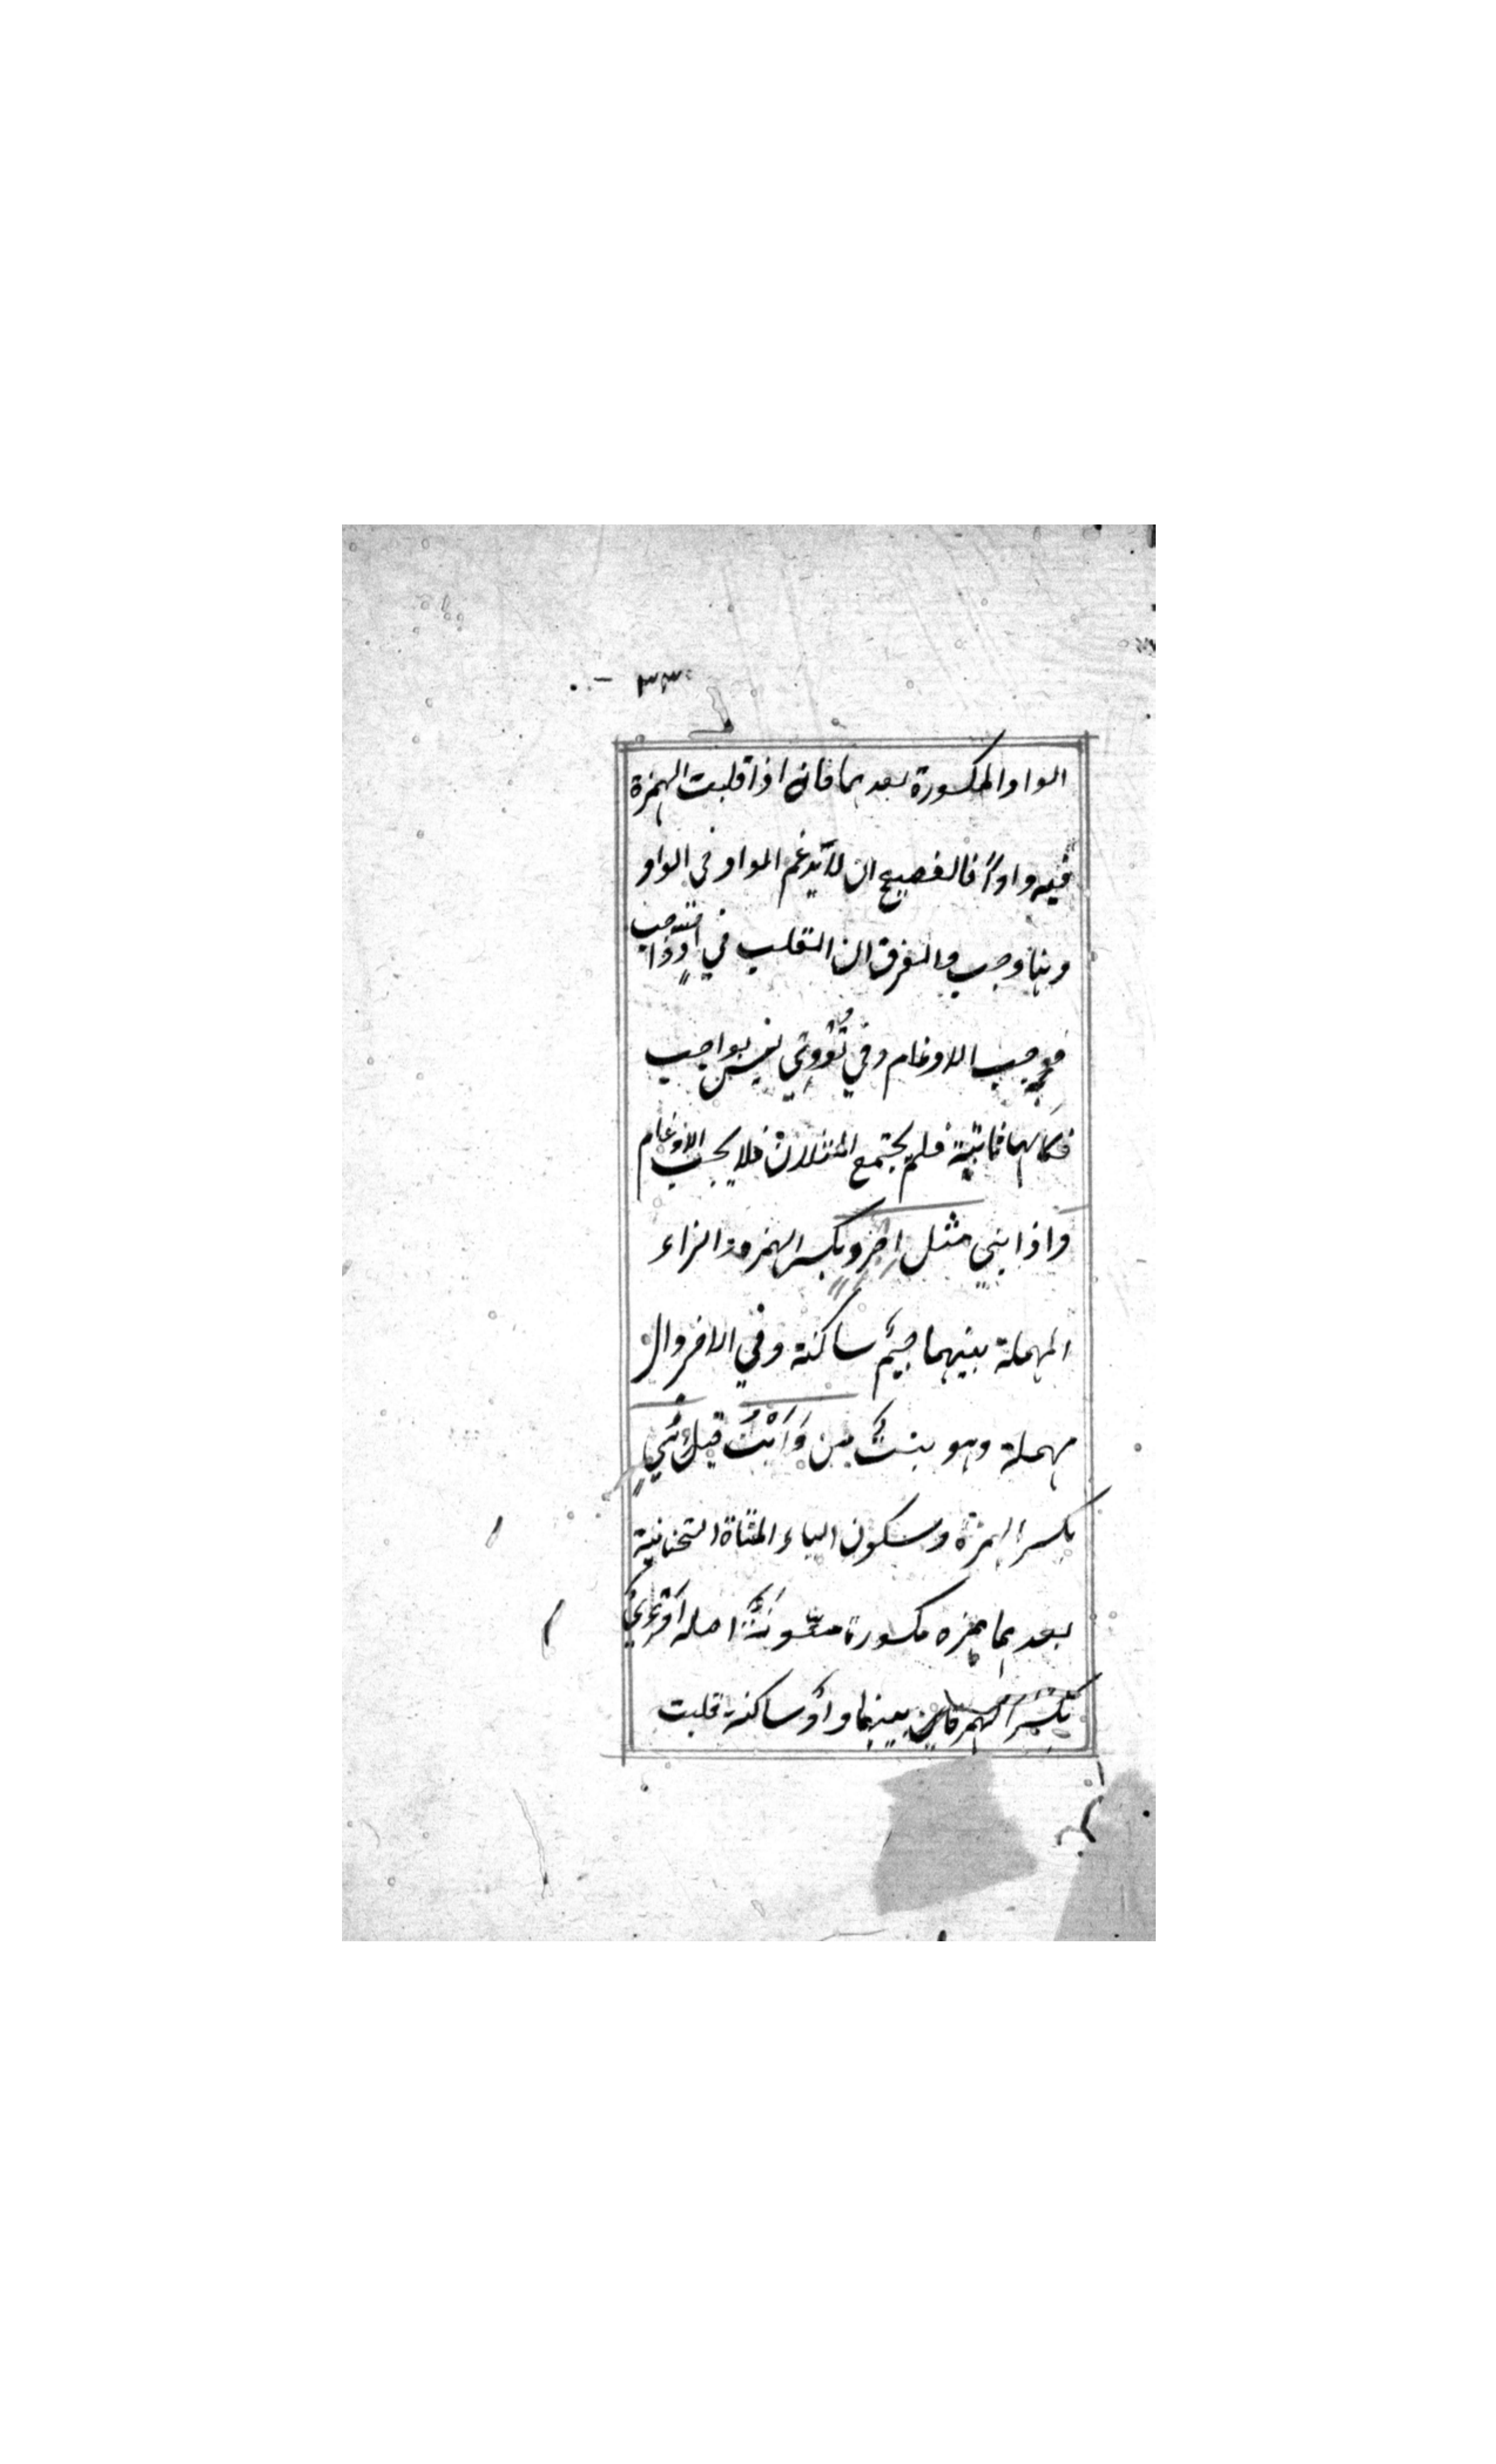 ٣٣
الواو المكسورة بعدها فانه اذا قلبت الهمزة
فيه واواً فالفصيح ان لا يدغم الواو في الواو
وهنا وجب والفرق ان القلب في واجب
فوجب الادغام وفي تُؤْوِي ليس بواجب
فكانها ثابتة فلم يجتمع المثلان فلا يجب الادغام
واذا بني مثل اجرد بكسر الهمزة والراء
المهملة بينهما جيم ساكنة وفي الآخر دال
مهملة وهو بنت من وَأَيْتُ قيل
بكسر الهمزة وسكون الياء المثناة التحتانية
بعدها همزه مكسورة منونة اصله
بكسر الهمزتين بينهما واو ساكنة قلبت